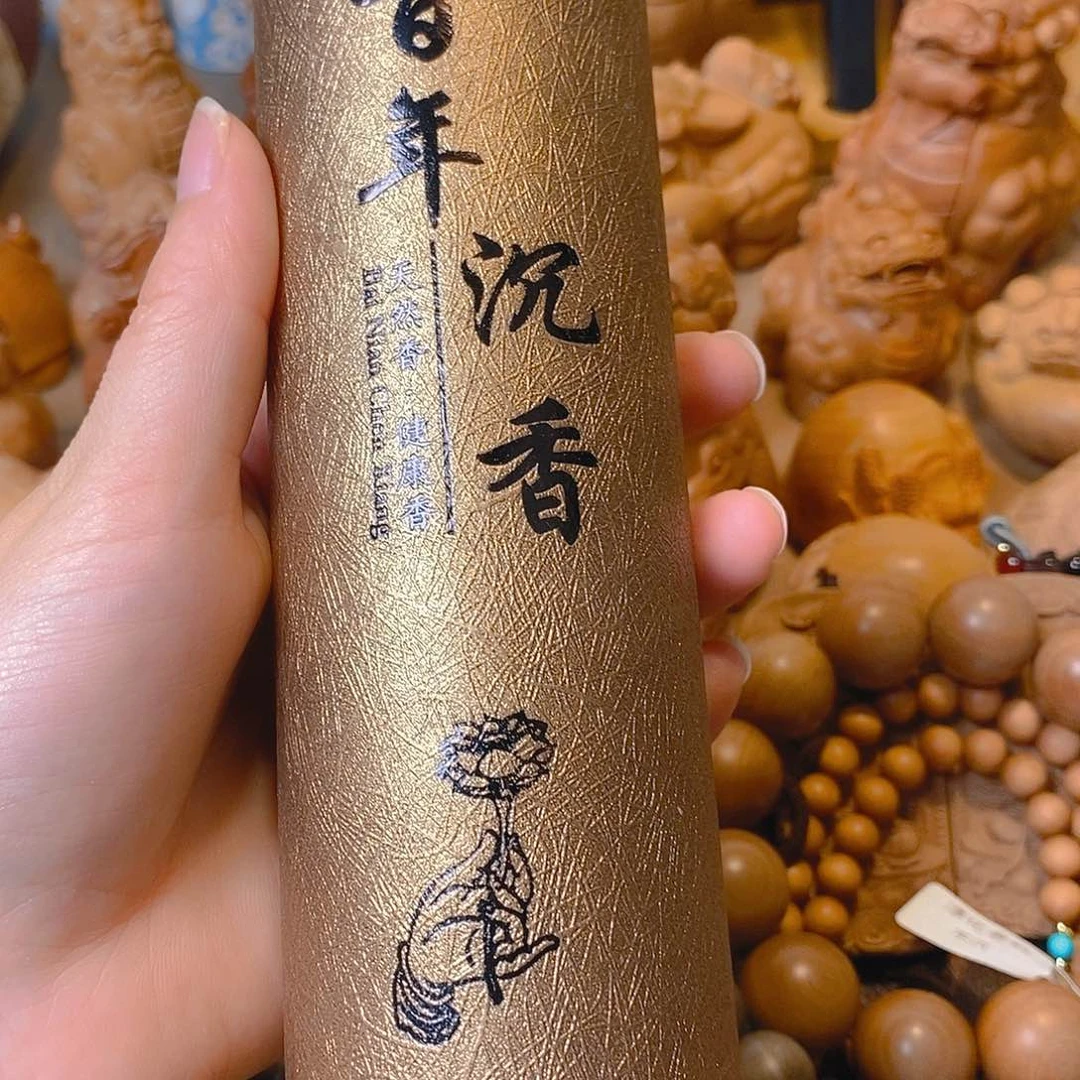 百年
沉香
天然香。健康香
Bai Nian Chen Xiang